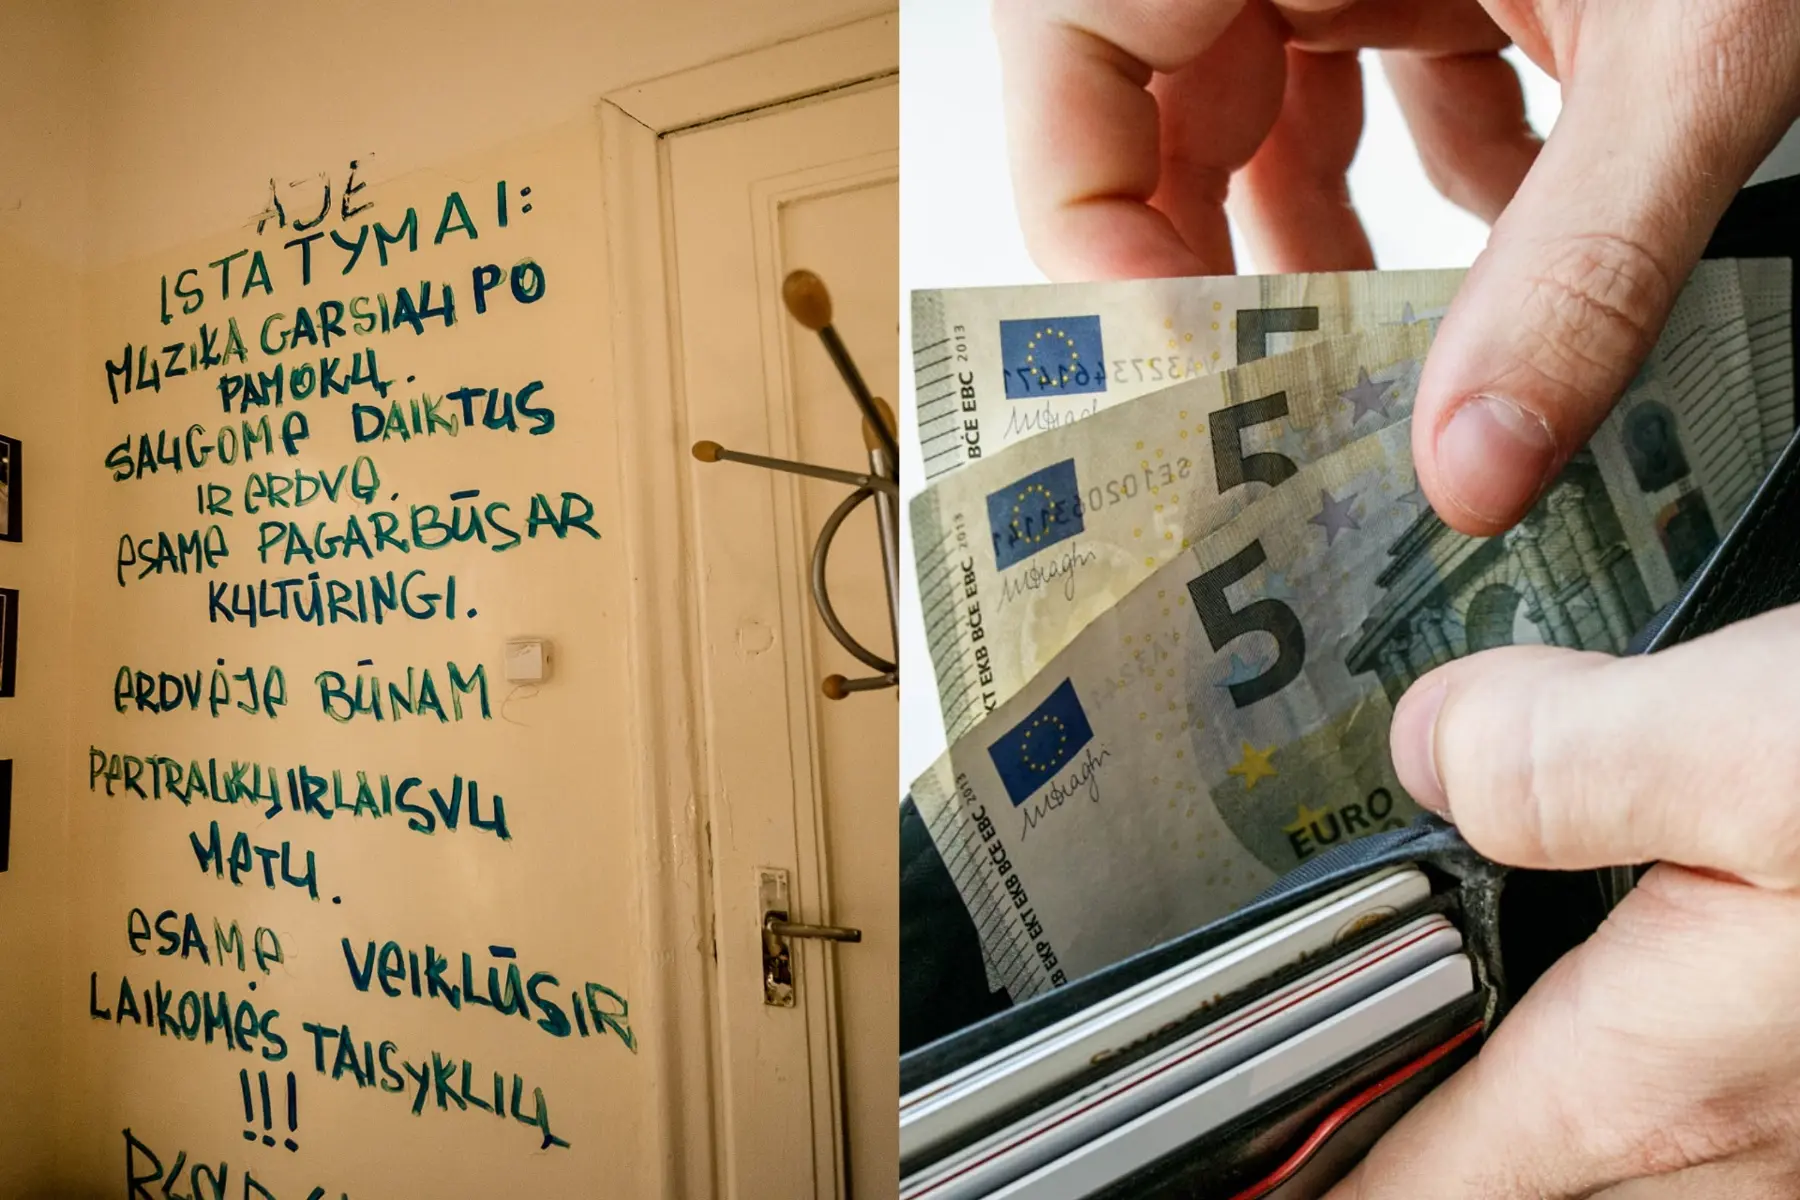 AJĖ
ĮSTATYMAI:
MUZIKA GARSIAU PO
PAMOKŲ.
SAUGOME DAIKTUS
IR ERDVĘ.
ESAME PAGARBŪS AR
KULTŪRINGI.
ERDVĖJE BŪNAM
PERTRAUKŲ IR LAISVU
METU.
ESAME VEIKLŪS IR
LAIKOMĖS TAISYKLIŲ
!!!
5
BCE EBC 2013
5
KT EKB BCE EBC 2013
5
EKP EKT EKB BCE EBC 2013
EURO